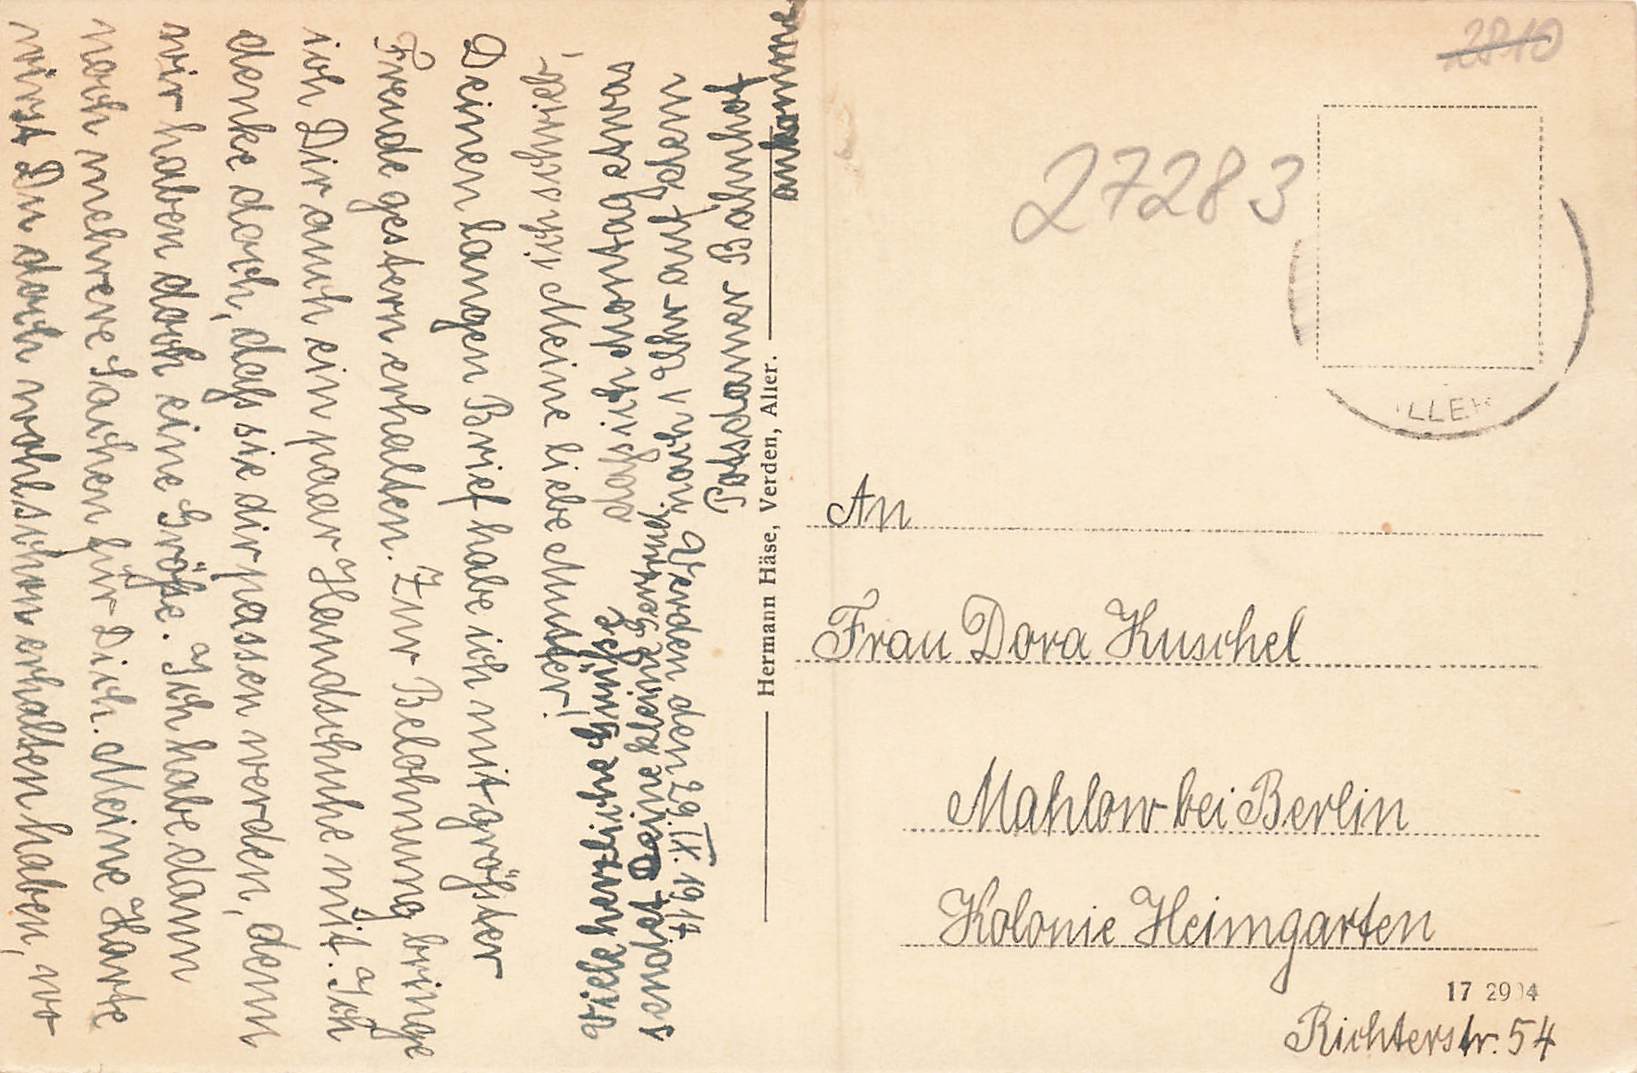 Verden den 29.IX.
Meine liebe Mutter!
Deinen langen Brief habe ich mit größter
Freude gestern erhalten. Zur Belohnung bringe
ich Dir auch ein paar Handschuhe mit. Ich
denke doch, daß sie dir passen werden, denn
wir haben doch eine Größe. Ich habe dann
noch mehrere Sachen für Dich. Meine Karte
wirst Du doch wohl schon erhalten haben, wo
daß ich Montag etwas
nach 1 Uhr auf dem
Potsdamer Bahnhof
ankomme.
Viele herzliche Grüße
sendet Deine kleine Gertrud.
Hermann Häse, Verden, Aller.
2810
27283
An
Frau Dora Kuschel
Mahlow bei Berlin
Kolonie Heimgarten
17 29 4
Richterstr. 54